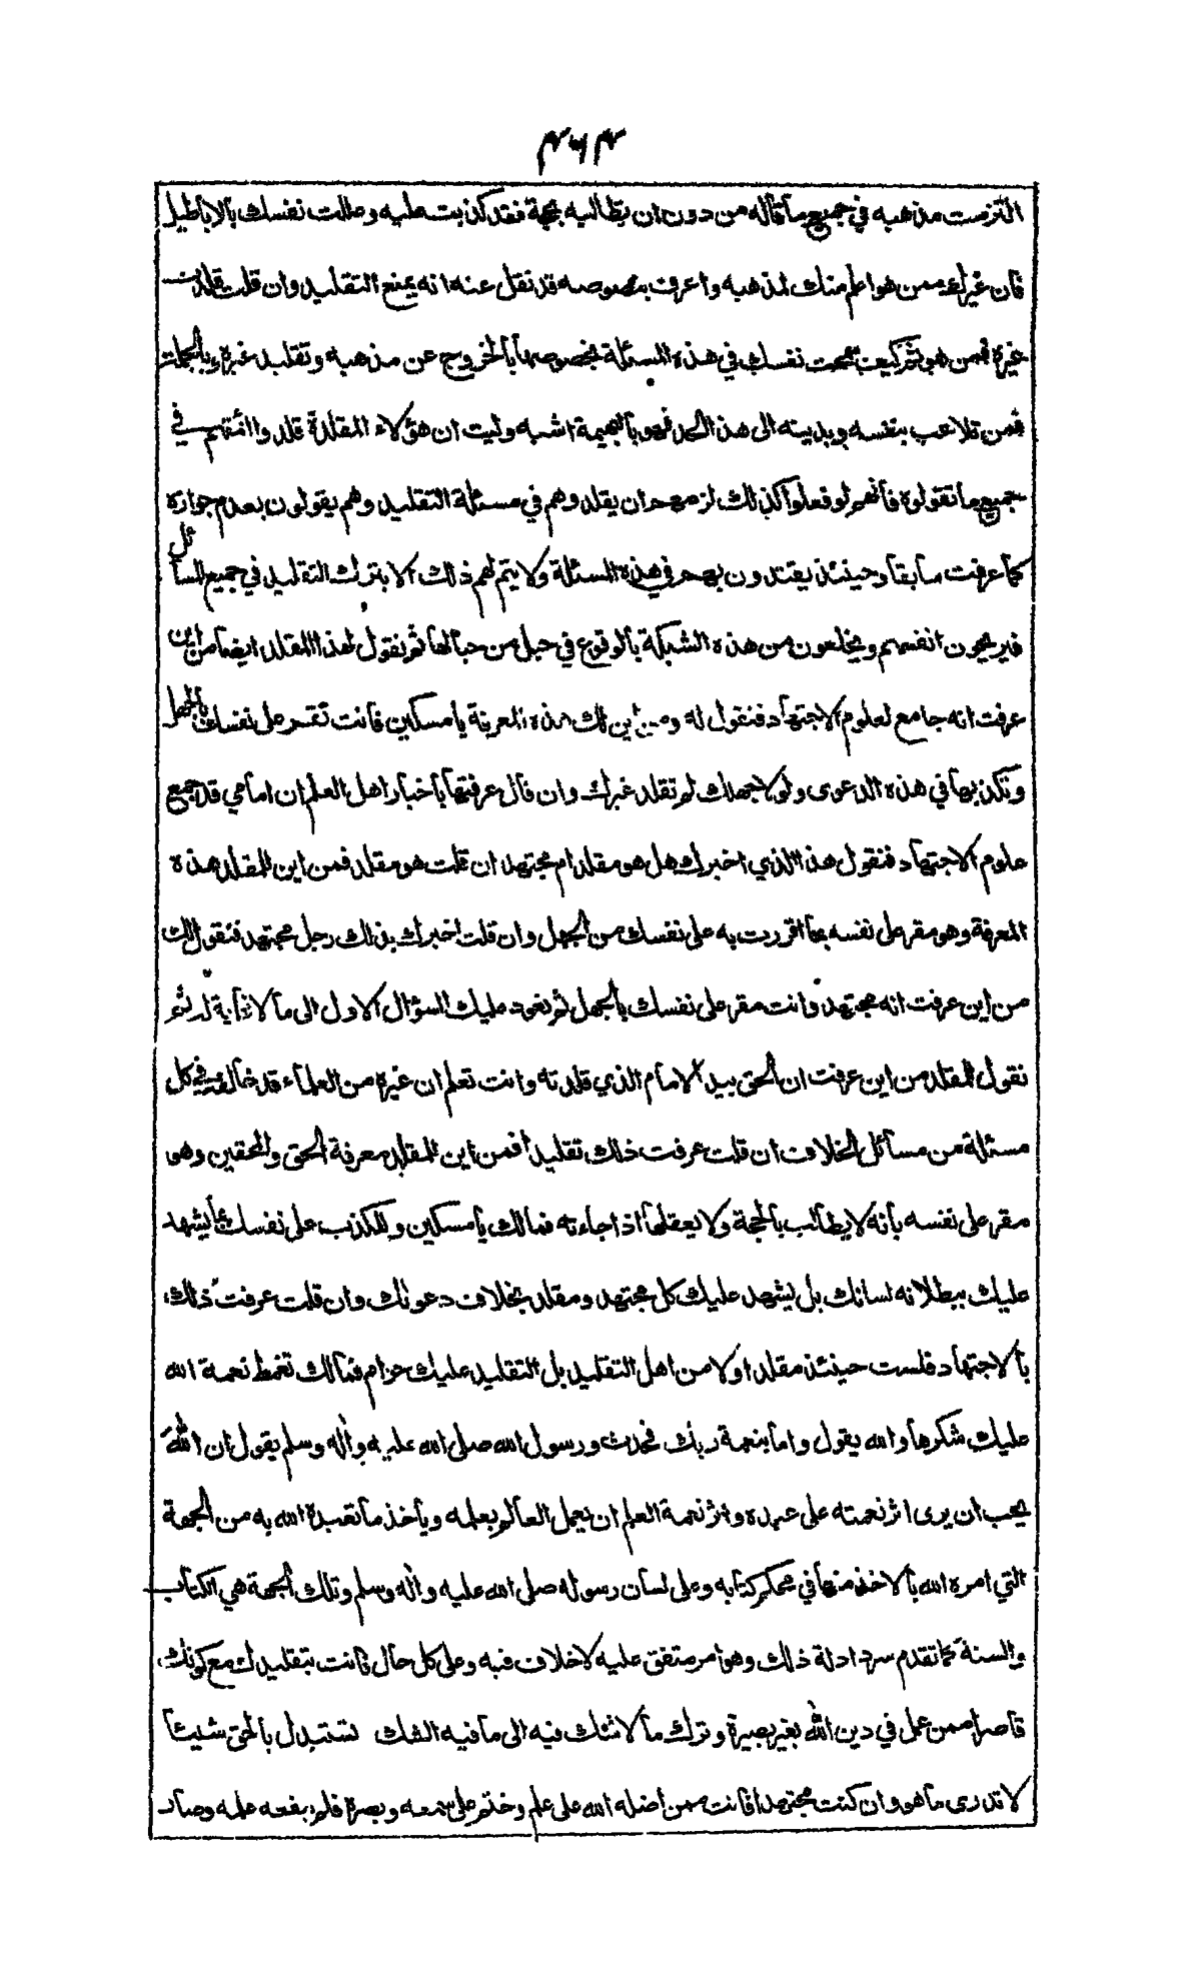 ٣٦٣
التزمت مذهبه في جميع ما قاله من دون ان يطالبه بحجة فقد كذبت عليه وعللت نفسك بالاباطيل
فان غيرك ممن هو اعلم منك لمذهبه واعرف بنصوصه قد نقل عنه انه يمنع التقليد وان قلت قلدت
غيره فمن هو ثم كيف سمحت نفسك في هذه المسئلة بخصوصها بالخروج عن مذهبه وتقليد غيره وبالجملة
فمن تلاعب بنفسه وبدينه الى هذا الحد فهو بالبهيمة اشبه وليت ان هؤلاء المقلدة قلدوا ائمتهم في
جميع ما تقولوه فانهم لو فعلوا كذلك لزمهم ان يقلدوهم في مسئلة التقليد وهم يقولون بعدم جوازه
كما عرفت سابقا وحينئذ يقتدون بهم في هذه المسئلة ولا يتم لهم ذلك الا بترك التقليد في جميع المسائل
فيريحون انفسهم ويخلعون من هذه الشبكة بالوقوع في حبل من حبالها ثم نقول لهذا المقلد ايضا من اين
عرفت انه جامع لعلوم الاجتهاد فنقول له ومن اين لك هذه المعرفة يا مسكين فانت تقر على نفسك بالجهل
وتكذبها في هذه الدعوى ولولا جهلك لم تقلد غيرك وان قال عرفتها باخبار اهل العلم ان امامي قد جمع
علوم الاجتهاد فنقول هذا الذي اخبرك هل هو مقلد ام مجتهد ان قلت هو مقلد فمن اين للمقلد هذه
المعرفة وهو مقر على نفسه بما اقررت به على نفسك من الجهل وان قلت اخبرك بذلك رجل مجتهد فنقول لك
من اين عرفت انه مجتهد وانت مقر على نفسك بالجهل ثم نعود عليك السؤال الاول الى ما لا نهاية له ثم
نقول للمقلد من اين عرفت ان الحق بيد الامام الذي قلدته وانت تعلم ان غيره من العلماء قد خالفه في كل
مسئلة من مسائل الخلاف ان قلت عرفت ذلك تقليدا فمن اين للمقلد معرفة الحق والمحقين وهو
مقر على نفسه بانه لا يطالب بالحجة ولا يعقلها اذا جاءته فمالك يا مسكين وللكذب على نفسك بما يشهد
عليك ببطلانه لسانك بل يشهد عليك كل مجتهد ومقلد بخلاف دعوتك وان قلت عرفت ذلك
بالاجتهاد فلست حينئذ مقلدا ولا من اهل التقليد بل التقليد عليك حرام فمالك تغمط نعمة الله
عليك شكرها والله يقول واما بنعمة ربك فحدث ورسول الله صلى الله عليه واله وسلم يقول ان الله
يحب ان يرى اثر نعمته على عبده واثر نعمة العلم ان يعمل العالم بعلمه وياخذ ما تعبده الله به من الجهة
التي امره الله بالاخذ منها في محكم كتابه وعلى لسان رسوله صلى الله عليه واله وسلم وتلك الجهة هي الكتاب
والسنة كما تقدم سرد ادلة ذلك وهو امر متفق عليه لا خلاف فيه وعلى كل حال فانت بتقليدك مع كونك
قاصرا ممن عمل في دين الله بغير بصيرة وترك ما لا شك فيه الى ما فيه الشك تستبدل بالحق شيئا
لا تدرى ما هو وان كنت مجتهدا فانت ممن اضله الله على علم وختم على سمعه وبصره فلم ينفعه علمه وصار